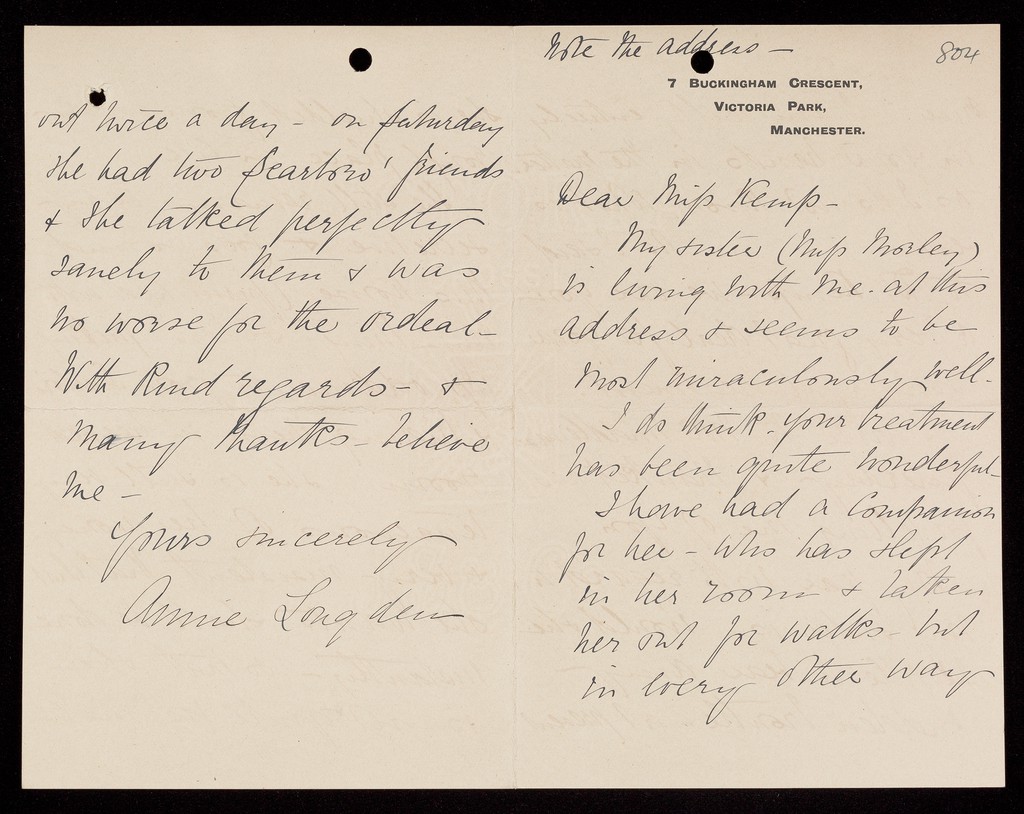 Note the address —
804
7 BUCKINGHAM CRESCENT,
VICTORIA PARK,
MANCHESTER.
Dear Miss Kemp –
My sister (Miss Morley)
is living with me. at this
address & seems to be
most miraculously well.
I do think your treatment
has been quite wonderful –
I have had a Companion
for her – who has slept
in her room & taken
her out for walks – but
in every other way
out twice a day – on Saturday
she had two Scarboro' friends
& she talked perfectly
sanely to them & was
no worse for the ordeal –
With kind regards – &
many thanks – believe
me –
Yours sincerely
Annie Longden